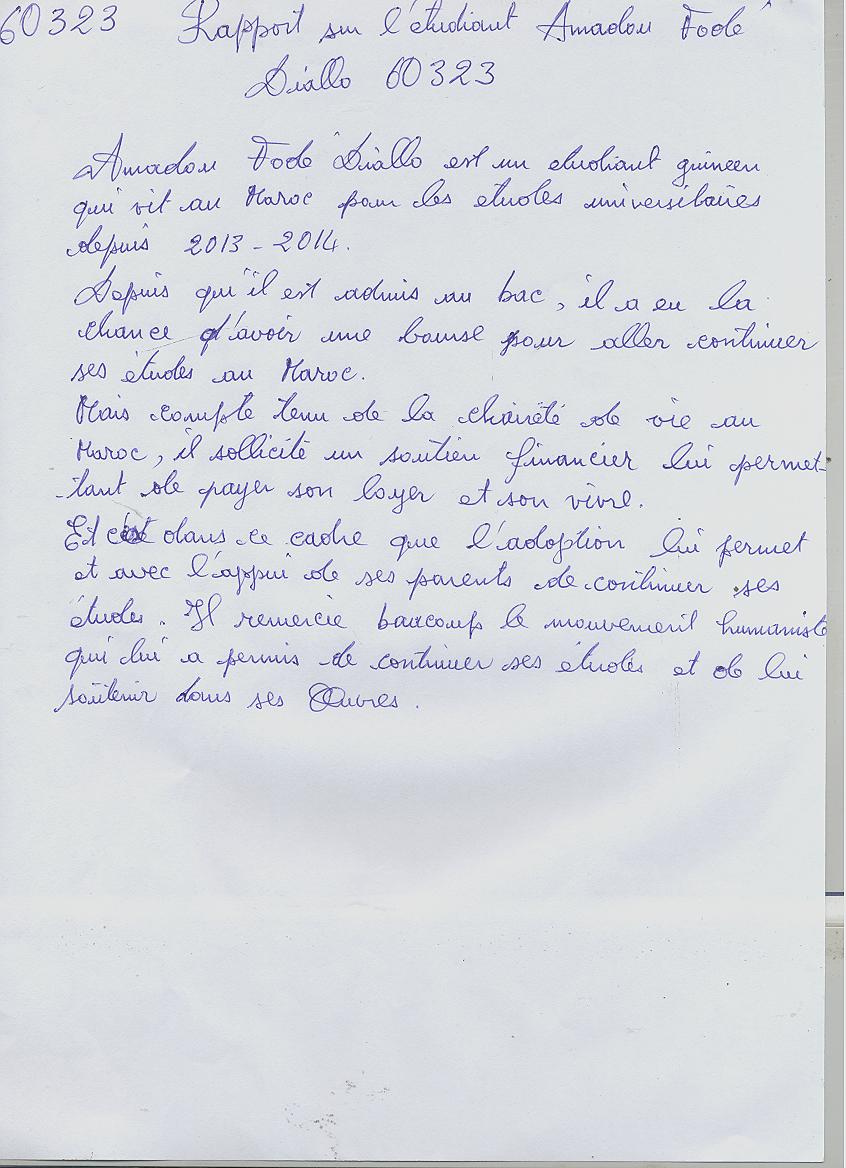 60323 Rapport sur l'étudiant Amadou Fodé
Diallo 60323
Amadou Fodé Diallo est un etudiant guineen
qui vit au Maroc pour les etudes universitaires
depuis 2013-2014.
Depuis qu'il est admis au bac, il a eu la
chance d'avoir une bourse pour aller continuer
ses études au Maroc.
Mais compte tenu de la chèreté de vie au
Maroc, il sollicite un soutien financier lui permet-
-tant de payer son loyer et son vivre.
Et c'est dans ce cadre que l'adoption lui permet
et avec l'appui de ses parents de continuer ses
études. Il remercie baucoup le mouvement humaniste
qui lui a permis de continuer ses études et de lui
soutenir dans ses Œuvres.